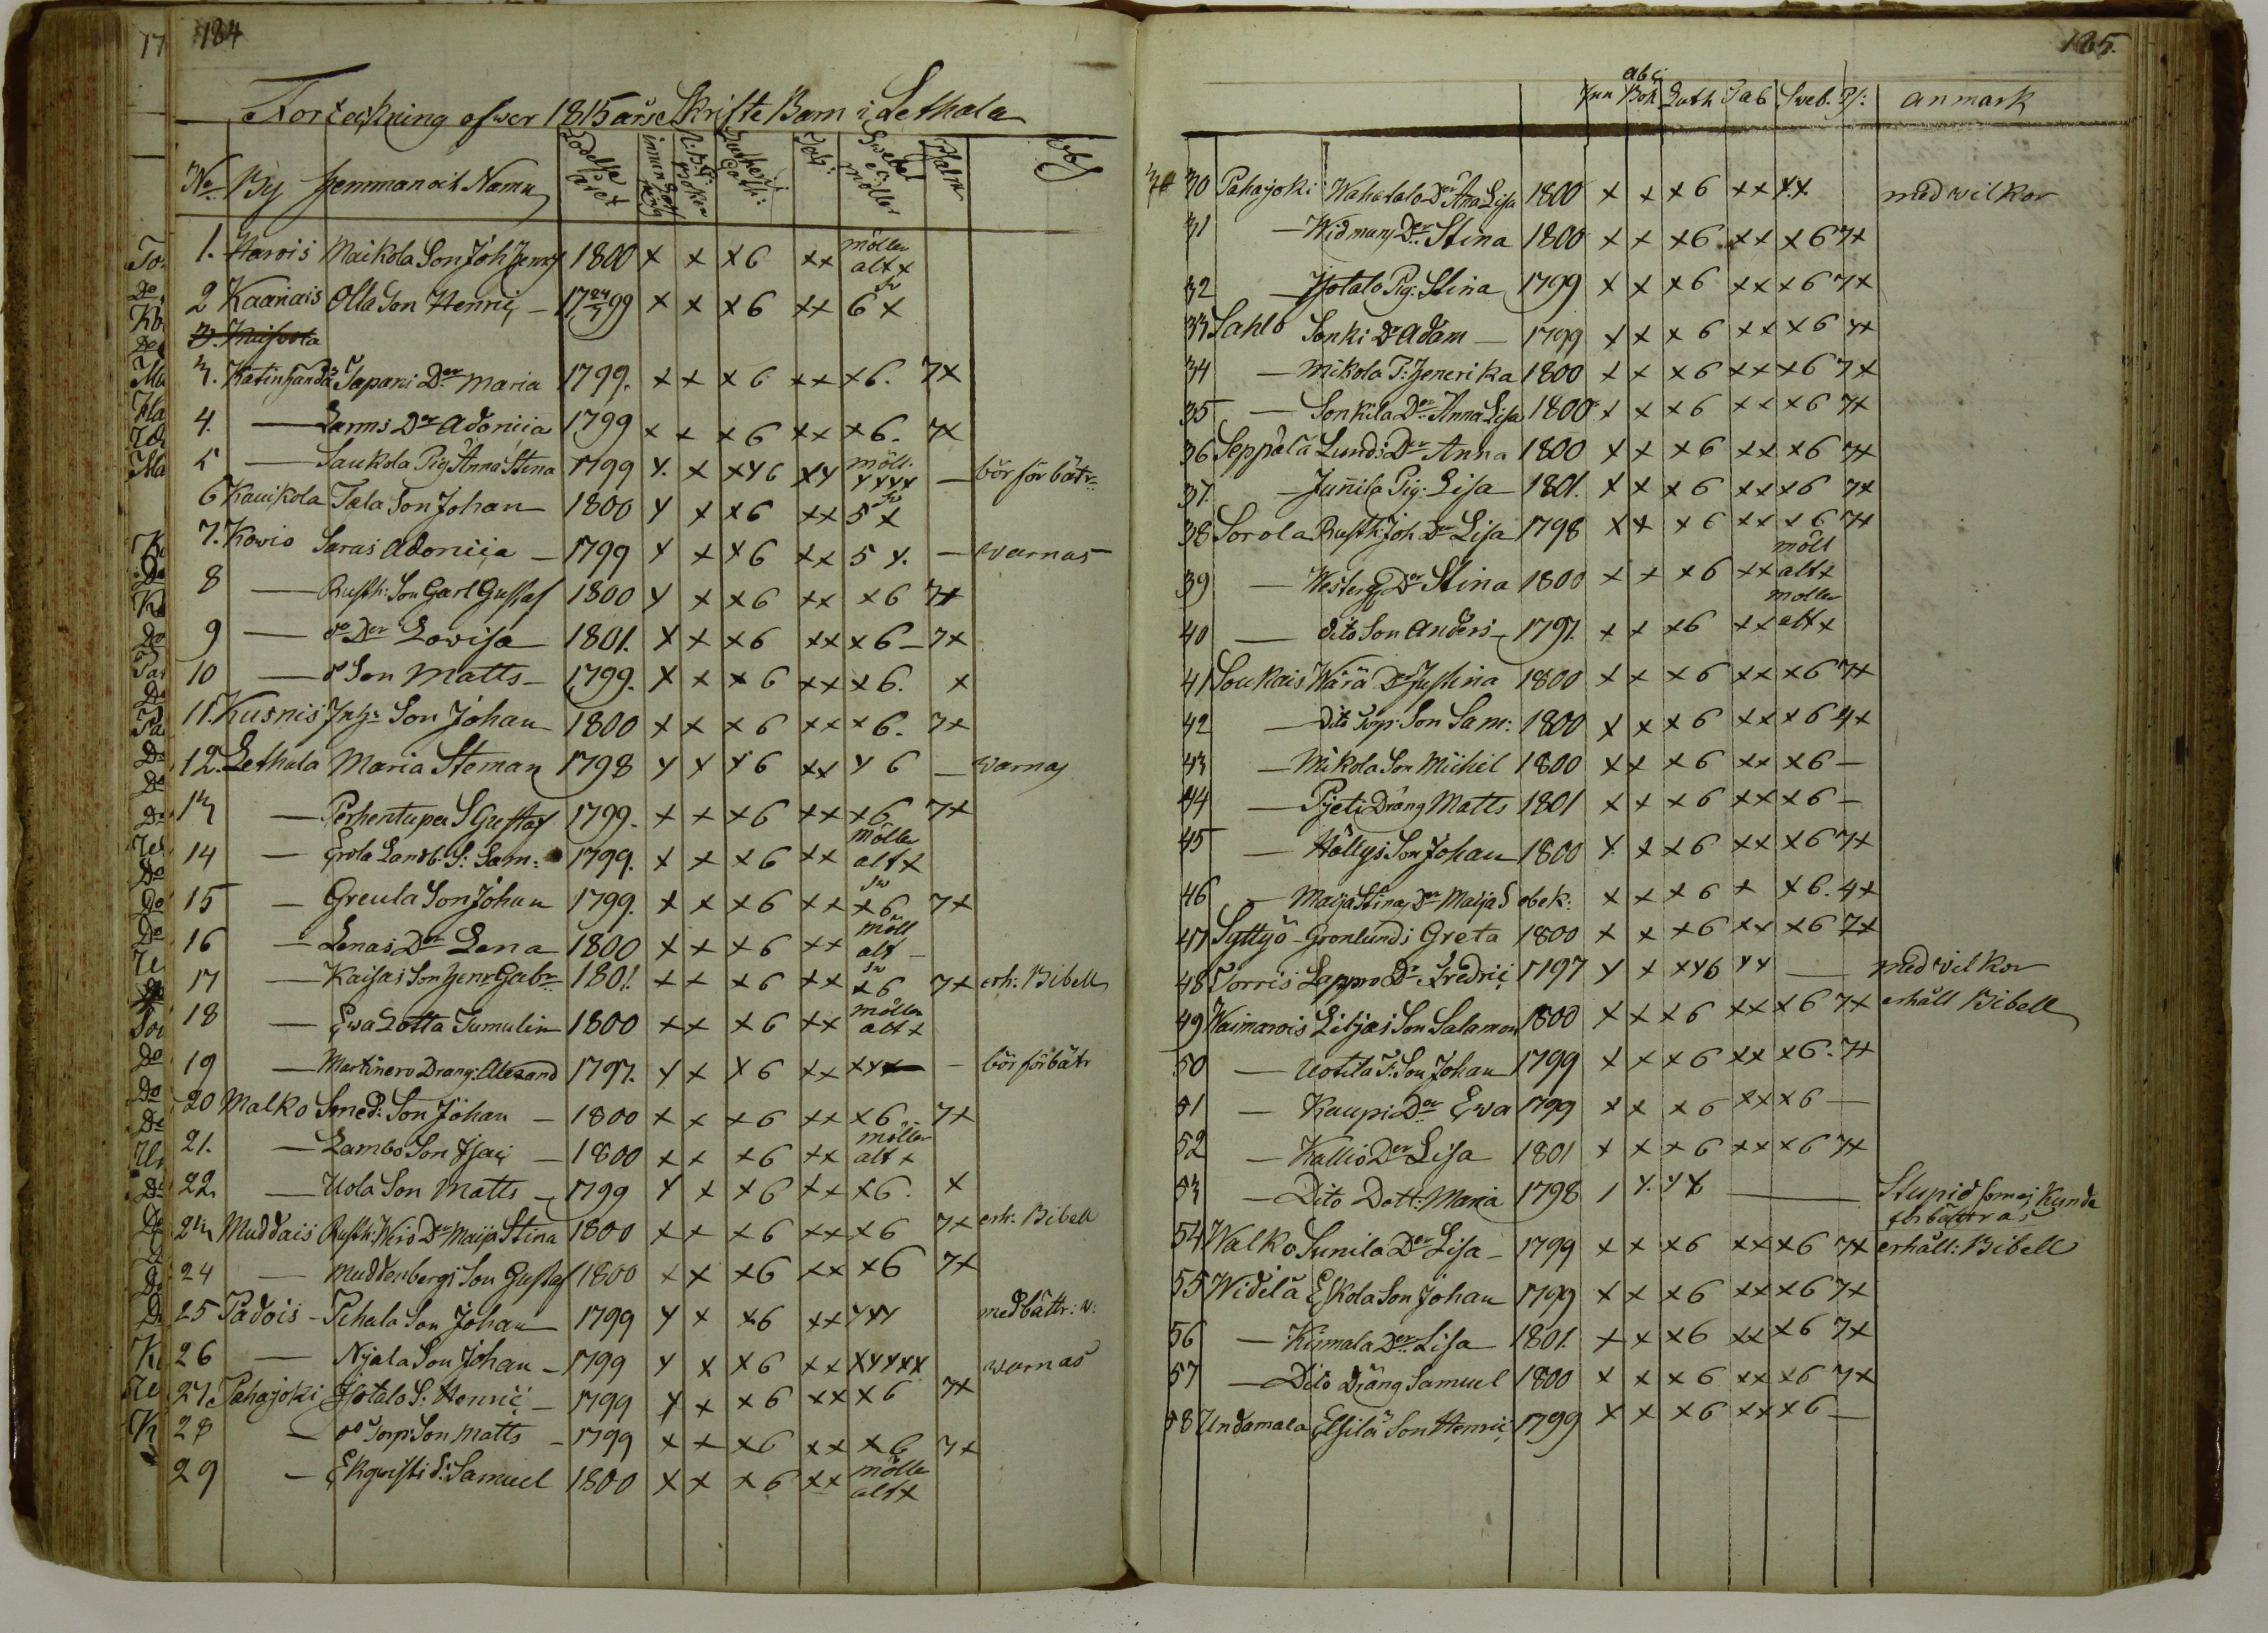 184
Forteckning öfwer 1815 års Skrifte Barn i Lethala
No By Hemman och Namn Födelse året innan A.B.C. Boken Lutheri Cath: Tab: Swebel. el. möller Psalm Obs
1. Harois Maikola Son Joh Henr 1800 x x x6 xx möller alt x
2 Kaanais Olla Son Henric - 17 24/7 99 x x x6 xx Sv 6 x
3. Kaisvola
3. Katinhanda Tapani Der Maria 1799. x x x6 xx x6. 7x
4. — Lanns Der Adoniia 1799 x x x6 xx x6. 7x
5 — Saukola Pig Anna Stina 1799 x. x xx6 xx möll. xxxx — bör förbätr
6 Kauikola Tala Son Johan 1800 x x x6 xx Sv 5 x
7. Kowio Saras Adoniija - 1799 x x x6 xx 5 x. — warnas
8 — Rusth: Son Carl Gustaf 1800 x x x6 xx x6 7x
9 — do Der Lovisa 1801. x x x6 xx x6 - 7x
10 — do Son Matts - 1799. x x x6 xx x6. x
11. Kusnis Inhs Son Johan 1800 x x x6 xx x6. 7x
12. Lethala Maria Steman 1798 x x x6 xx x6 — warnas
13 — Perhentupa S Gustaf 1799. x x x6 xx x6 7x
14 — Erola Landb. S: Sam: 1799. x x x6 xx möller alt x
15 — Greula Son Johan 1799. x x x6 xx Sv x6 7x
16 — Lenas Der Lena 1800 x x x6 xx möll alt -
17 — Kaisas Son Henr Gabr 1801. x x x6 xx Sv x6 7x erh. Bibell
18 — Ewa Lotta Tumulin 1800 x x x6 xx möller alt x
19 — Martinero Drang: Alexand 1797. x x x6 xx xxx — bör förbätr
20 Malko Smed: Son Johan - 1800 x x x6 xx x6 7x
21. — Lambo Son Isac - 1800 x x x6 xx möller alt x
22. — Uola Son Matts - 1799 x x x6 xx x6. x
23 Muddais Rusth: Weis Dr Maija Stina 1800 x x x6 xx x6 7x erh: Bibell
24 — Muddenbergs Son Gustaf 1800 x x x6 xx x6 7x
25 Padois - Pihala Son Johan 1799 x x x6 xx xxx med bättr: w:
26 — Nyala Son Johan - 1799 x x x6 xx xxxxx warnas
27. Pahajoki Isotalo S: Henric - 1799 x x x6 xx x6 7x
28 — do Torp: Son Matts - 1799 x x x6 xx x6 7x
29 — Ekqwists S: Samuel 1800 x x x6 xx möller alt x
185.
Inn abc Bok Luth Tab Sveb. Ps: anmark
30 Pahajoki Wahatalo Der Ana Lisa 1800 x x x6 xx xx med wilkor
31 — Widmans Der Stina 1800 x x x6 xx x6 7x
32 — Isotalo Pig: Stina 1799 x x x6 xx x6 7x
33 Sahlo Sonki Dr Adam — 1799 x x x6 xx x6 7x
34 — Mikola P: Henerika 1800 x x x6 xx x6 7x
35 — Sonkila Der Anna Lisa 1800 x x x6 xx x6 7x
36 Seppälä Lunds Der Anna 1800 x x x6 xx x6 7x
37. — Junila Pig: Lisa 1801. x x x6 xx x6 7x
38 Sorola Rusth: Joh Der Lisa 1798 x x x6 xx x6 7x
39 — Westerg Der Stina 1800 x x x6 xx möll alt x
40 — dito Son Anders 1797. x x x6 xx moller alt x
41 Soukais Wärä Dr Justina 1800 x x x6 xx x6 7x
42 — Dito Torp: Son Sam: 1800 x x x6 xx x6 4x
43 — Mikola Son Michel 1800 x x x6 xx x6 —
44 — Pjeti Drang Matts 1801 x x x6 xx x6 —
45 — Höllys Son Johan 1800 x x x6 xx x6 7x
46 — Maija Stinas Der Maija S obek: x x x6 x x6. 4x
47 Syttyö - Gronlunds Greta 1800 x x x6 xx x6 7x
48 Torris Lappro Dr Fredric 1797 x x xxx6 xx — med vilkor
49 Waimarois Liljas Son Salamon 1800 x x x6 xx x6 7x erhåll Bibell
50 — Uotila T: Son Johan 1799 x x x6 xx x6. 7x
51 — Kaupi Der Ewa 1799 x x x6 xx x6 —
52 — Kallio Der Lisa 1801 x x x6 xx x6 7x
53 — Dito Dott: Maria 1798 1 x. xx — Stupid som ej kunde förbättras
54 Walko Sunila Der Lisa - 1799 x x x6 xx x6 7x erhåll: Bibell
55 Widilä Eskola Son Johan 1799 x x x6 xx x6 7x
56 — Kirmala Der Lisa 1801. x x x6 xx x6 7x
57 — Dito Dräng Samuel 1800 x x x6 xx x6 7x
58 Undamala Elsilä Son Henric 1799 x x x6 xx x6 —